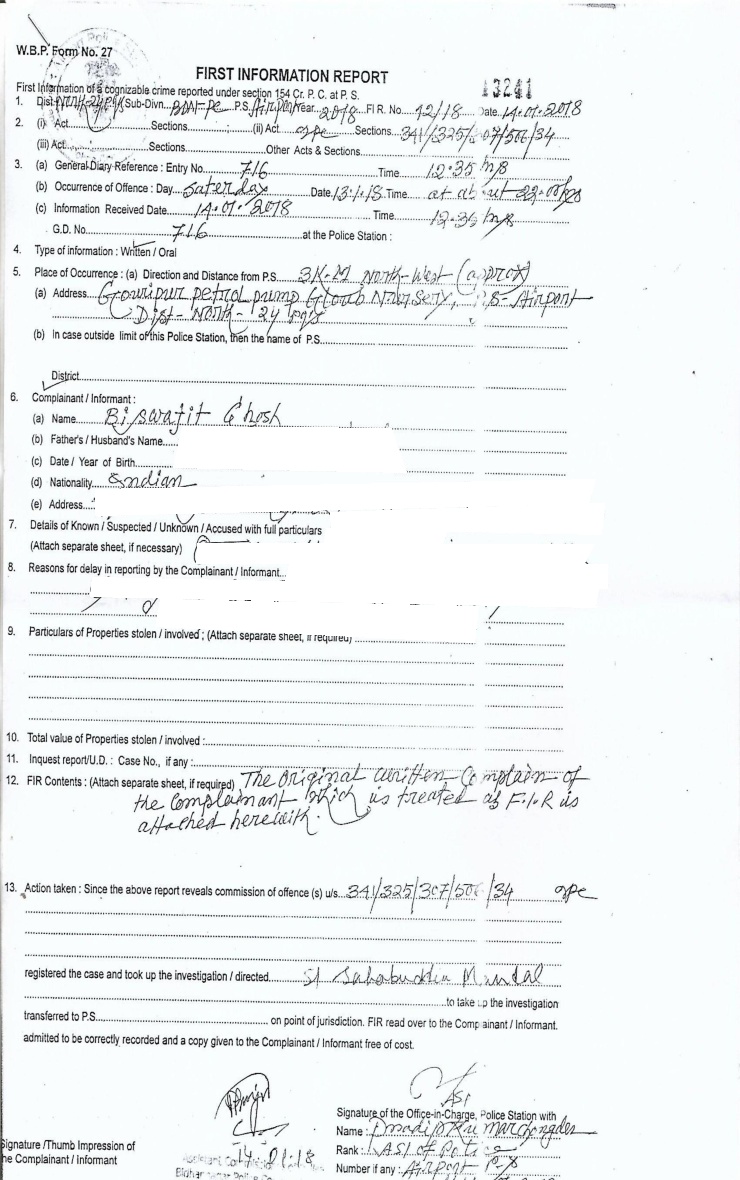 W.B.P. Form No. 27
FIRST INFORMATION REPORT
13241
First Information of a cognizable crime reported under section 154 Cr. P. C. at P. S.
1. Dist. North-24 Pgs Sub-Divn. P.S. Airport Year 2018 FIR. No. 12/18 Date 14.01.2018
2. (i) Act Sections (ii) Act IPC Sections 341/325/307/506/34
(iii) Act Sections Other Acts & Sections
3. (a) General Diary Reference : Entry No. 716 Time 12:35 hrs
(b) Occurrence of Offence : Day Saterday Date 13.1.18 Time at about 22.00 hrs
(c) Information Received Date 14.01.2018 Time 12.35 hrs
G.D. No. 716 at the Police Station :
4. Type of information : Written / Oral
5. Place of Occurrence : (a) Direction and Distance from P.S. 3K.M North-West (approx)
(a) Address Gouripur petrol pump Nursery, P.S- Airport
Dist- North- 24 Pgs
(b) In case outside limit of this Police Station, then the name of P.S.
District
6. Complainant / Informant :
(a) Name Biswajit Ghosh
(b) Father's / Husband's Name
(c) Date / Year of Birth
(d) Nationality Indian
(e) Address
7. Details of Known / Suspected / Unknown / Accused with full particulars
(Attach separate sheet, if necessary)
8. Reasons for delay in reporting by the Complainant / Informant
9. Particulars of Properties stolen / involved ; (Attach separate sheet, if required)
10. Total value of Properties stolen / involved :
11. Inquest report/U.D. : Case No., if any :
12. FIR Contents : (Attach separate sheet, if required) The original written Complain of
the Complainant which is treated as F.I.R is
attached herewith.
13. Action taken : Since the above report reveals commission of offence (s) u/s. 341/325/307/506/34 IPC
registered the case and took up the investigation / directed SI Sahabuddin Mondal
to take up the investigation
transferred to P.S. on point of jurisdiction. FIR read over to the Complainant / Informant.
admitted to be correctly recorded and a copy given to the Complainant / Informant free of cost.
ASI
Signature of the Office-in-Charge, Police Station with
Name :
Signature /Thumb Impression of
the Complainant / Informant
14.01.18
Rank : ASI of Police
Number if any : Airport P.S